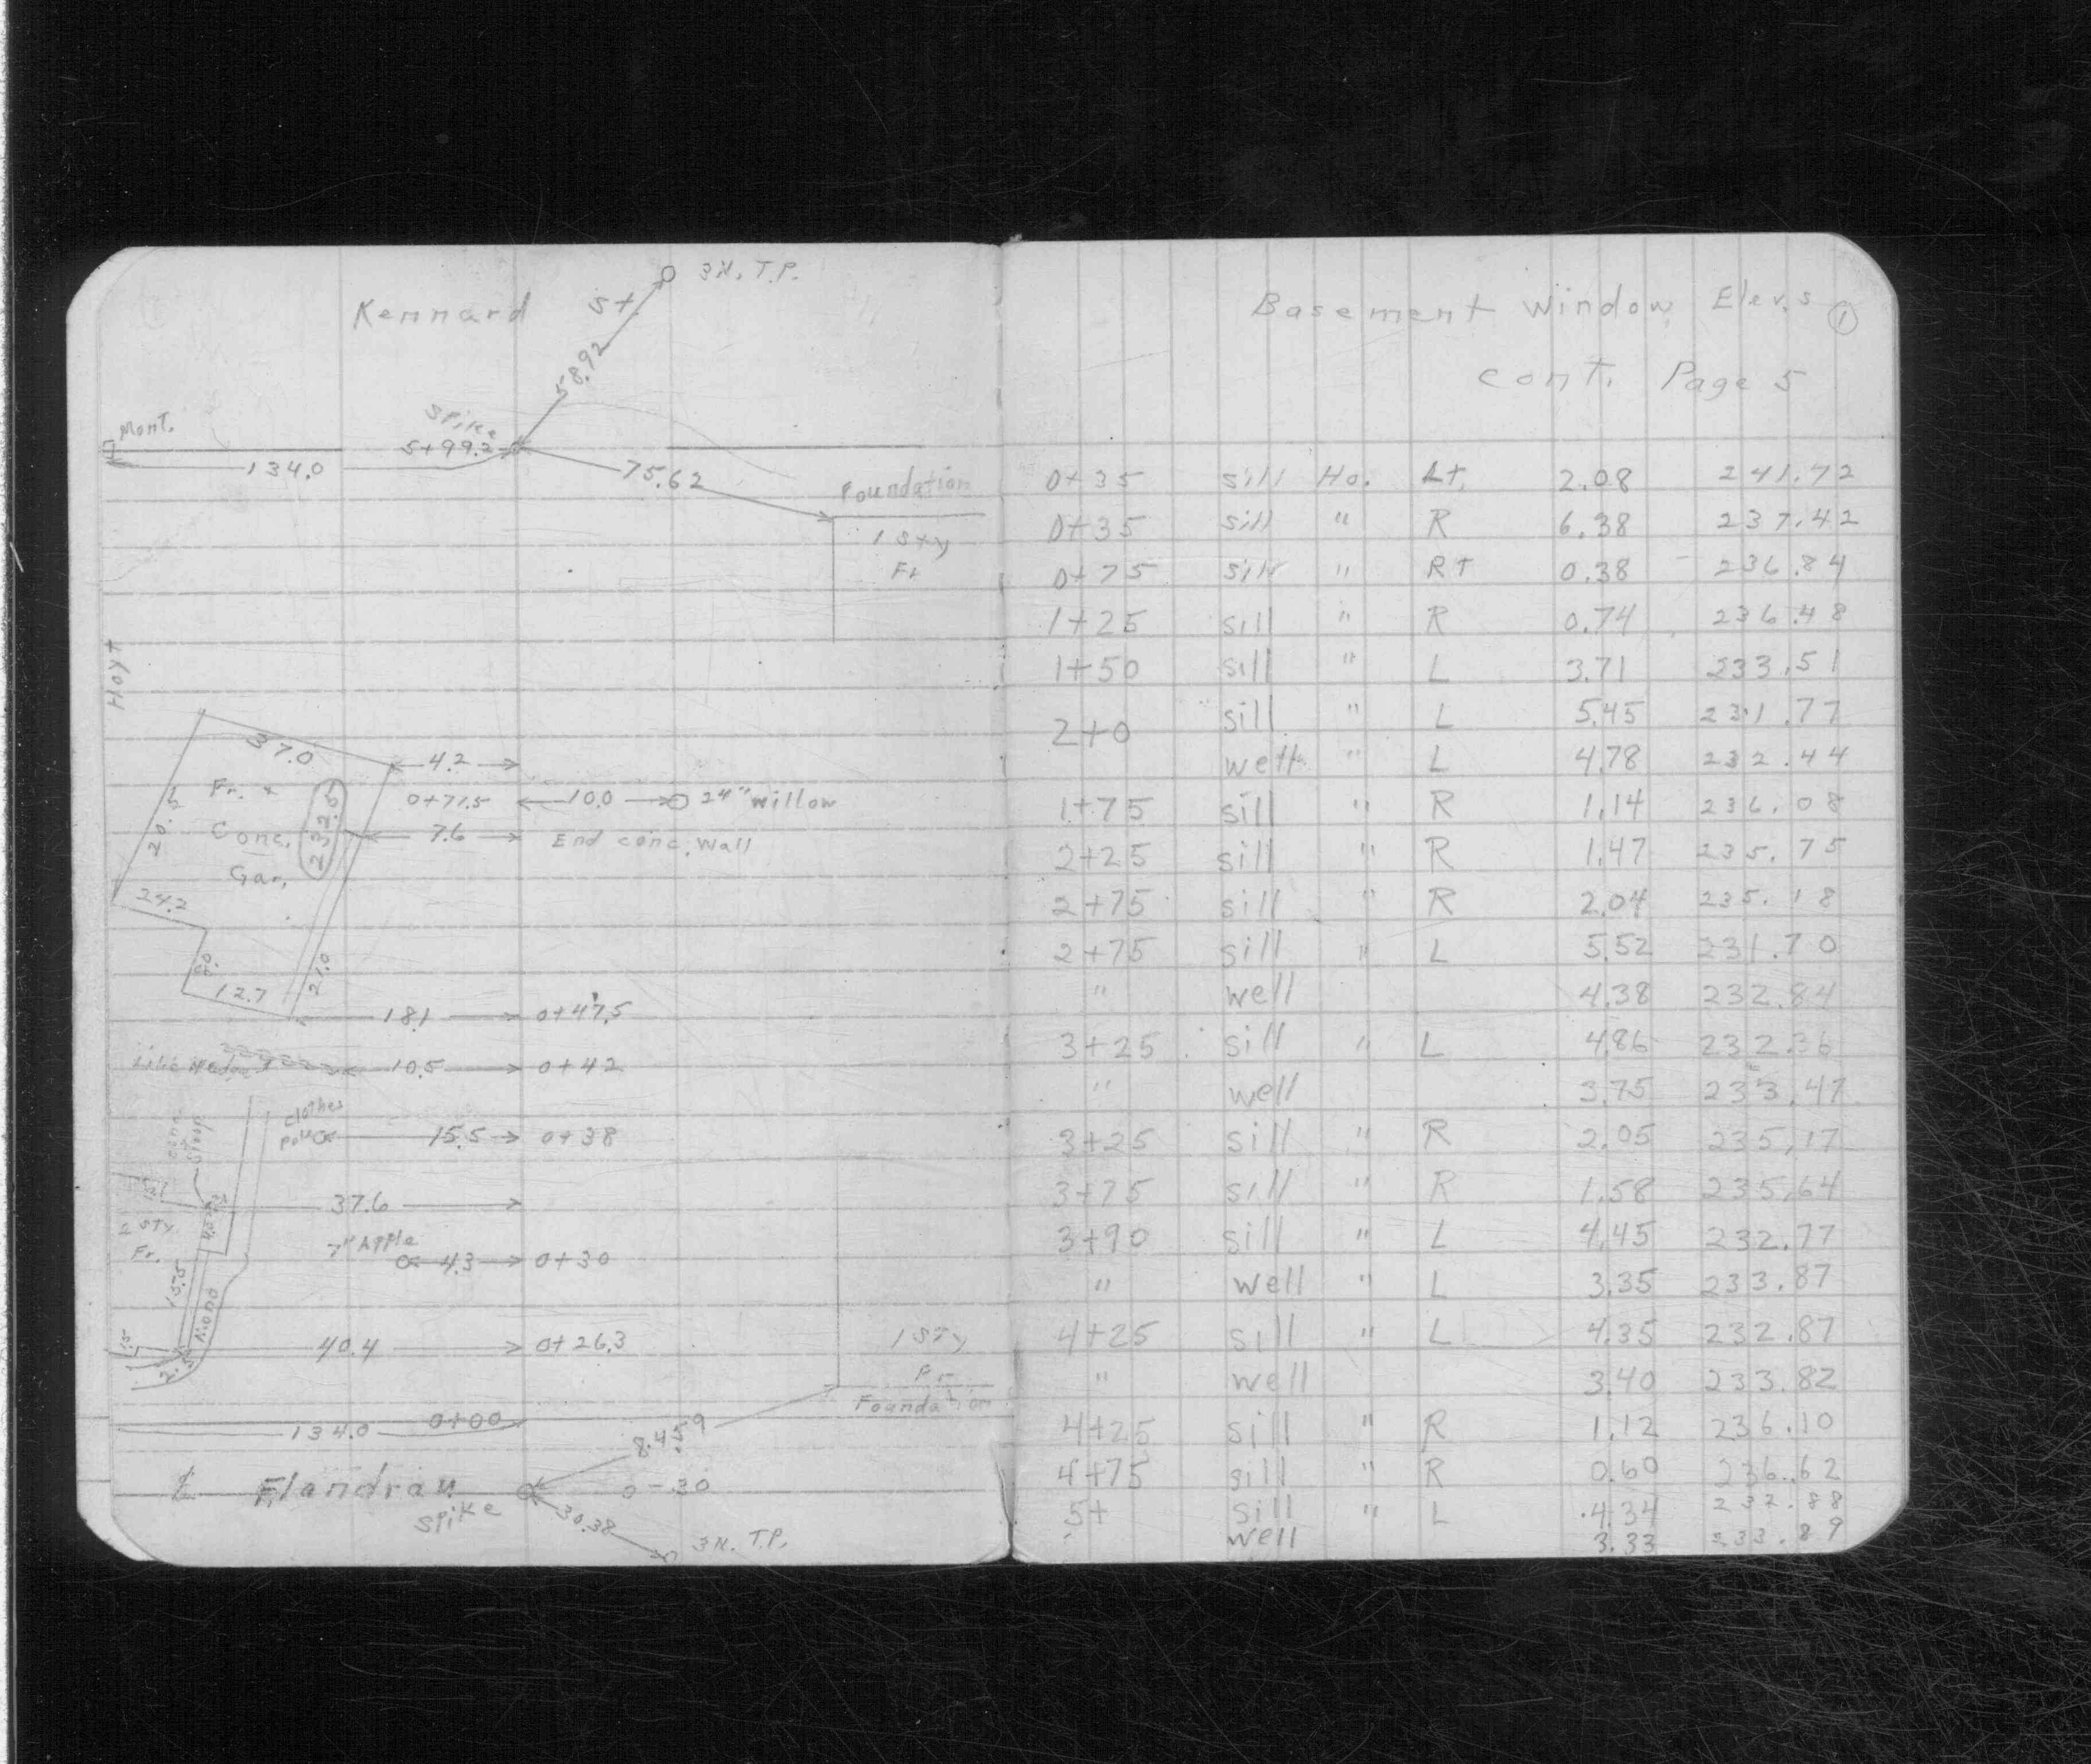 Kennard St.
3N. T.P.
58.92
Mont.
Spike
5+99.2
134.0
75.62
Foundation
1 Sty
Fr
Hoyt
37.0
4.2
Fr. &
Conc.
Gar.
232.5
20.5
0+77.5 10.0 24" willow
7.6 End conc. Wall
24.2
12.7
21.0
18.1 0+47.5
Lilac Hedge 10.5 0+42
Clothes
Pole 15.5 0+38
conc.
stoop
37.6
2 STy
Fr.
7" Apple
4.3 0+30
15.5
40.4 0+26.3
2.5
1 STy
Fr
Foundation
134.0 0+00
℄ Flandrau
Spike
0-30
30.38
3N. T.P.
Basement Window Elevs 1
cont. Page 5
0+35 sill Ho. Lt. 2.08 241.72
0+35 sill " R 6.38 237.42
0+75 sill " RT 0.38 236.84
1+25 sill " R 0.74 236.48
1+50 sill " L 3.71 233.51
2+0 sill " L 5.45 231.77
well " L 4.78 232.44
1+75 sill " R 1.14 236.08
2+25 sill " R 1.47 235.75
2+75 sill " R 2.04 235.18
2+75 sill " L 5.52 231.70
" well 4.38 232.84
3+25 sill " L 4.86 232.36
" well 3.75 233.47
3+25 sill " R 2.05 235.17
3+75 sill " R 1.58 235.64
3+90 sill " L 4.45 232.77
" well " L 3.35 233.87
4+25 sill " L 4.35 232.87
" well 3.40 233.82
4+25 sill " R 1.12 236.10
4+75 sill " R 0.60 236.62
5+ sill " L 4.34 232.88
" well 3.33 233.89